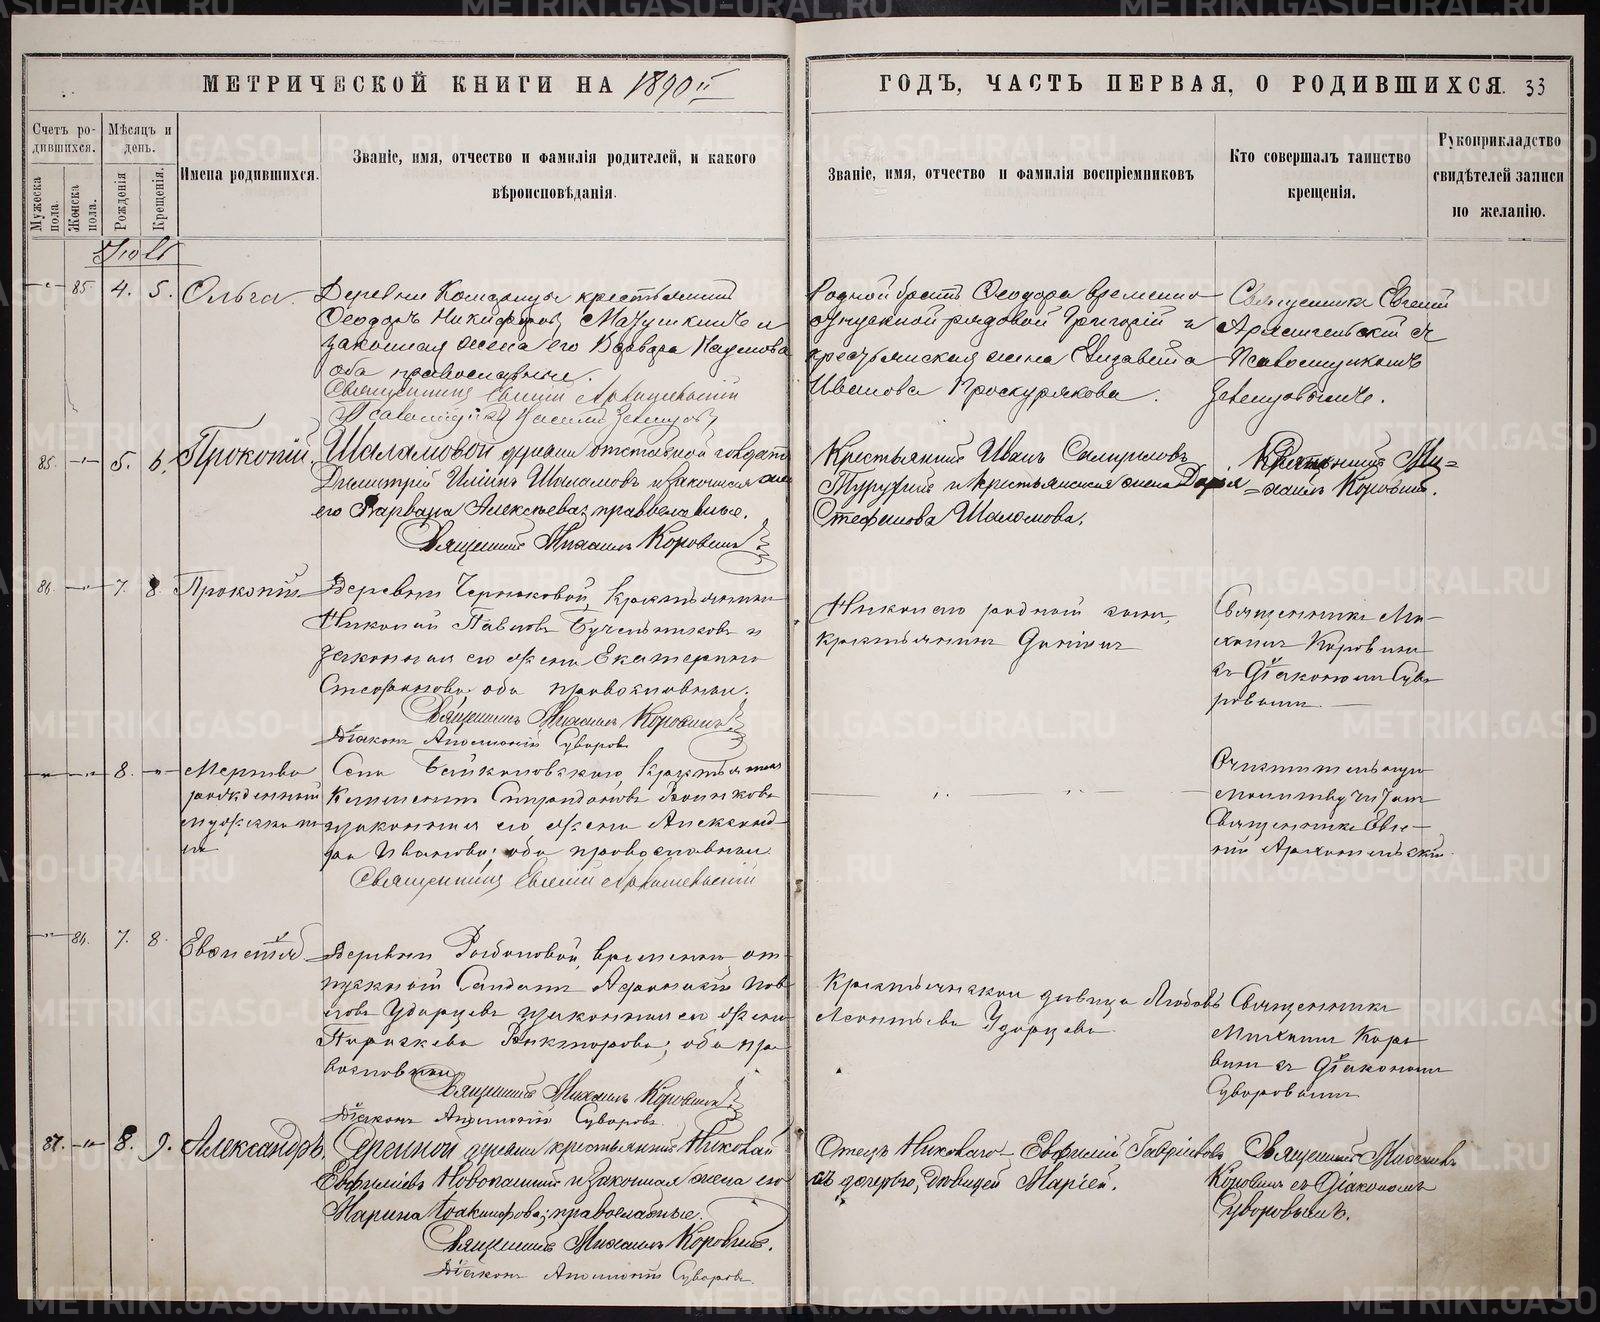 МЕТРИЧЕСКОЙ КНИГИ НА 1890й
ГОДЪ, ЧАСТЬ ПЕРВАЯ, О РОДИВШИХСЯ. 33
Счетъ ро-
дившихся.
Мужеска пола.
Женска пола.
Мѣсяцъ и
день.
Рожденія
Крещенія.
Имена родившихся.
Званіе, имя, отчество и фамилія родителей, и какого
вѣроисповѣданія.
Званіе, имя, отчество и фамилія воспріемниковъ
Кто совершалъ таинство
крещенія.
Рукоприкладство
свидѣтелей записи
по желанію.
Іюль
85 4. 5. Ольга
Деревни крестьянинъ
Ѳеодоръ Никифоровъ и
законная жена его Варвара Наумова
оба православные.
Священникъ Евгеній Архангельскій
Родной братъ Ѳеодора временно
отпускной рядовой Григорій и
крестьянская жена Елизавета
Иванова Проскурякова.
Священникъ Евгеній
Архангельскій съ
Псаломщикомъ
85. 5. 6. Прокопій.
Шаламовой дружины отставной солдатъ
Димитрій Ильинъ Шаламовъ и законная жена
его Варвара Алексѣева; православные.
Священникъ Михаилъ Коровинъ
Крестьянинъ Иванъ
и крестьянская жена Дарья
Стефанова Шаламова.
Священникъ Ми=
=хаилъ Коровинъ.
86. 7. 8. Прокопій
Деревни Черноковой, Крестьянинъ
Николай Павловъ и
законная его жена Екатерина
Стефанова; оба православные.
Священникъ Михаилъ Коровинъ
Діаконъ Аполлоній Суворовъ
Николаю родной сынъ,
крестьянинъ Даніилъ
Священникъ Ми-
хаилъ Коровинъ
съ Діакономъ Суво-
ровымъ
8. Мертво
рожденный
Села Байкаловскаго, Крестьянинъ
Климентъ Спиридоновъ
законная его жена Александ-
ра Иванова; оба православные
Священникъ Евгеній Архангельскій
Очистительную
молитву читалъ
Священникъ Евге-
ній Архангельскій
86. 7. 8. Евпатія
Деревни временно от-
пускной Солдатъ Аѳанасій Пав-
ловъ Ударцевъ законная его жена
Параскева Викторова; оба пра-
вославные
Священникъ Михаилъ Коровинъ
Діаконъ Аполлоній Суворовъ
Крестьянская дѣвица Любовь
Леонтьева Ударцева
Священникъ
Михаилъ Коро-
винъ съ Діакономъ
Суворовымъ
87. 8. 9. Александръ.
крестьянинъ Николай
Евфиміевъ и законная жена его
Марина Іоакимова; православные.
Священникъ Михаилъ Коровинъ.
Діаконъ Аполлоній Суворовъ
Отецъ Николаго Евфимій Гавріиловъ
съ дочерью, дѣвицей Маріей.
Священникъ Михаилъ
Коровинъ съ Діакономъ
Суворовымъ.
METRIKI.GASO-URAL.RU